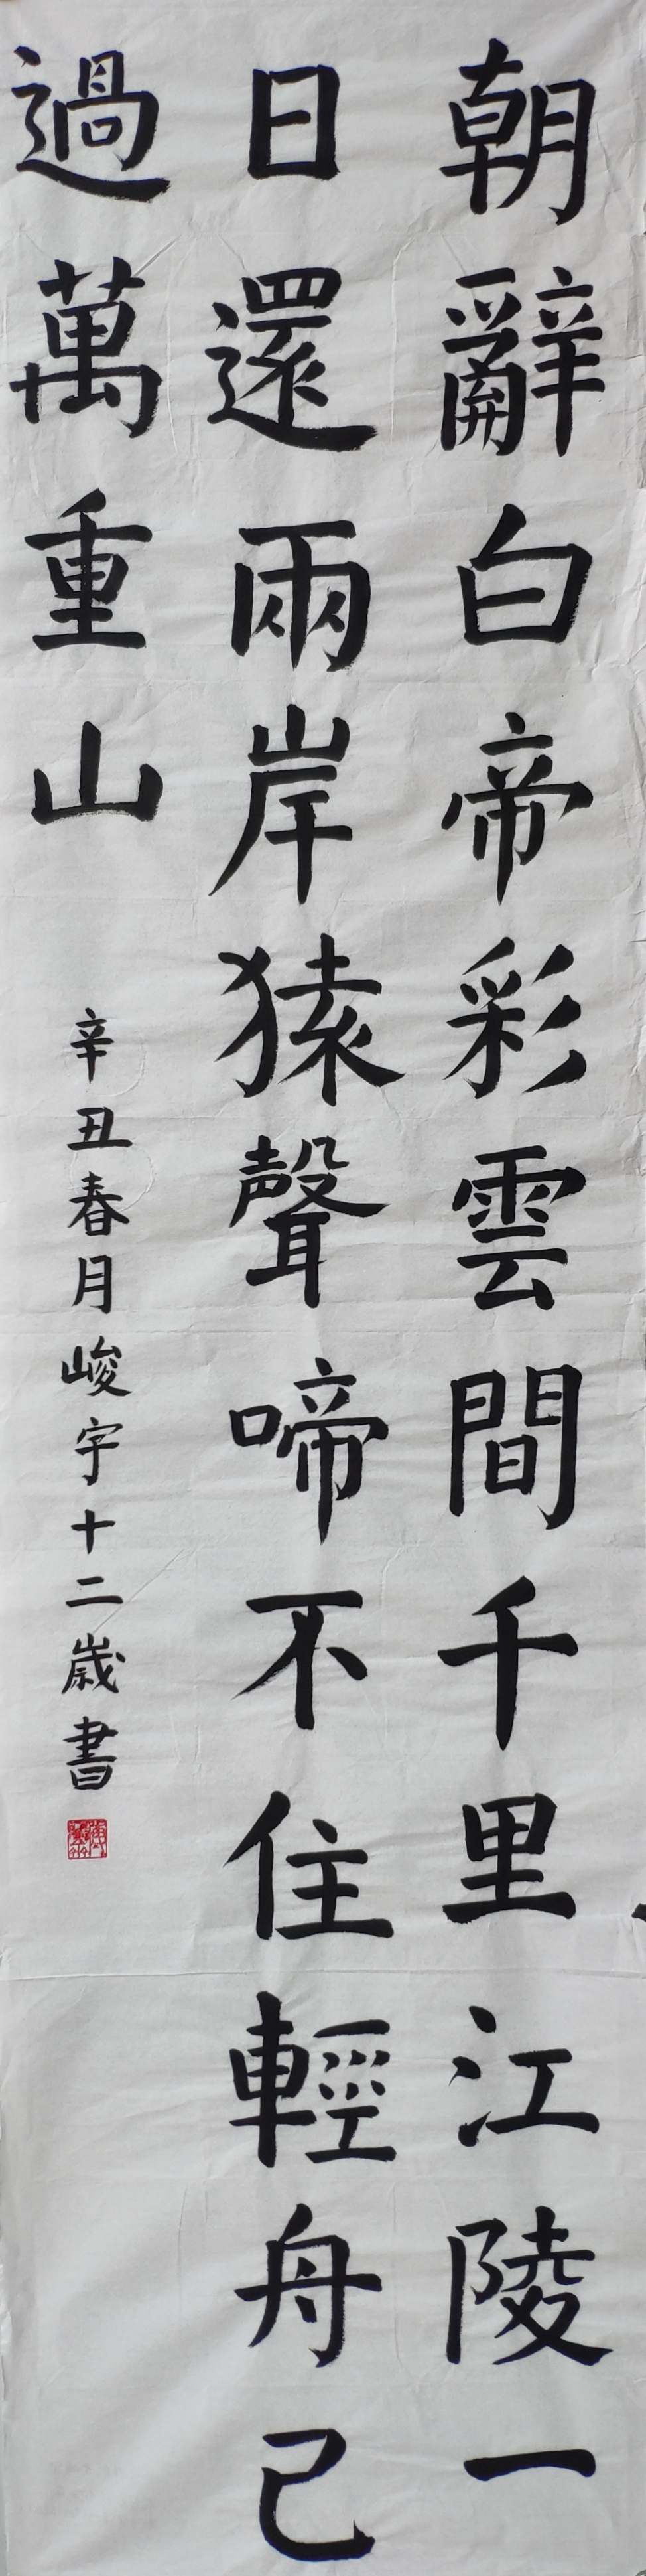 朝辭白帝彩雲間千里江陵一
日還兩岸猿聲啼不住輕舟已
過萬重山
辛丑春月峻宇十二歲書